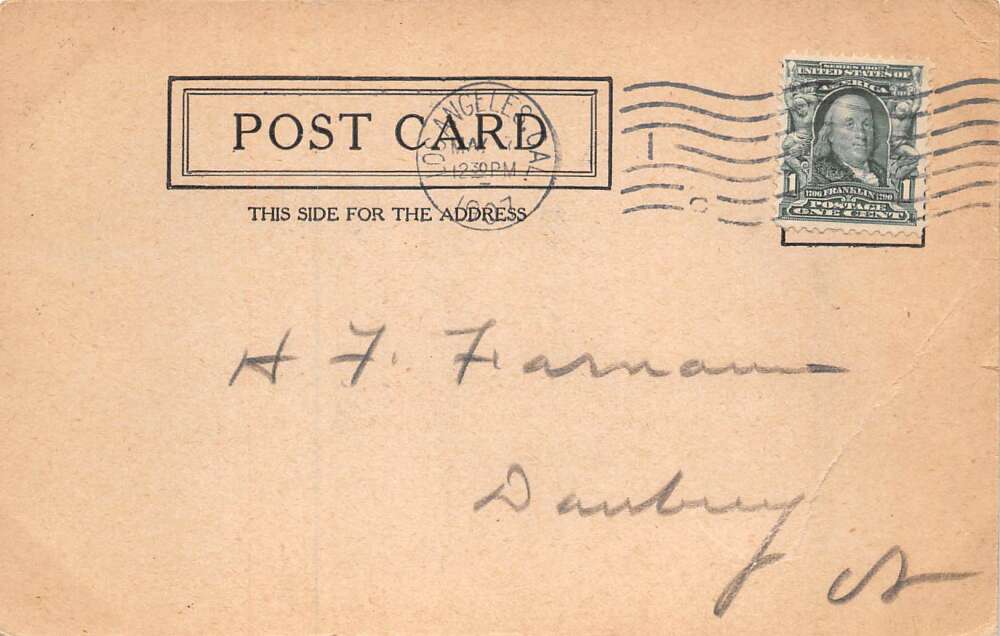 POST CARD
THIS SIDE FOR THE ADDRESS
LOS ANGELES, CAL.
12 30 PM
1907
SERIES 1902
UNITED STATES OF
AMERICA
1 1
1706 FRANKLIN 1790
POSTAGE
ONE CENT
H. F. Farnam
Danbury